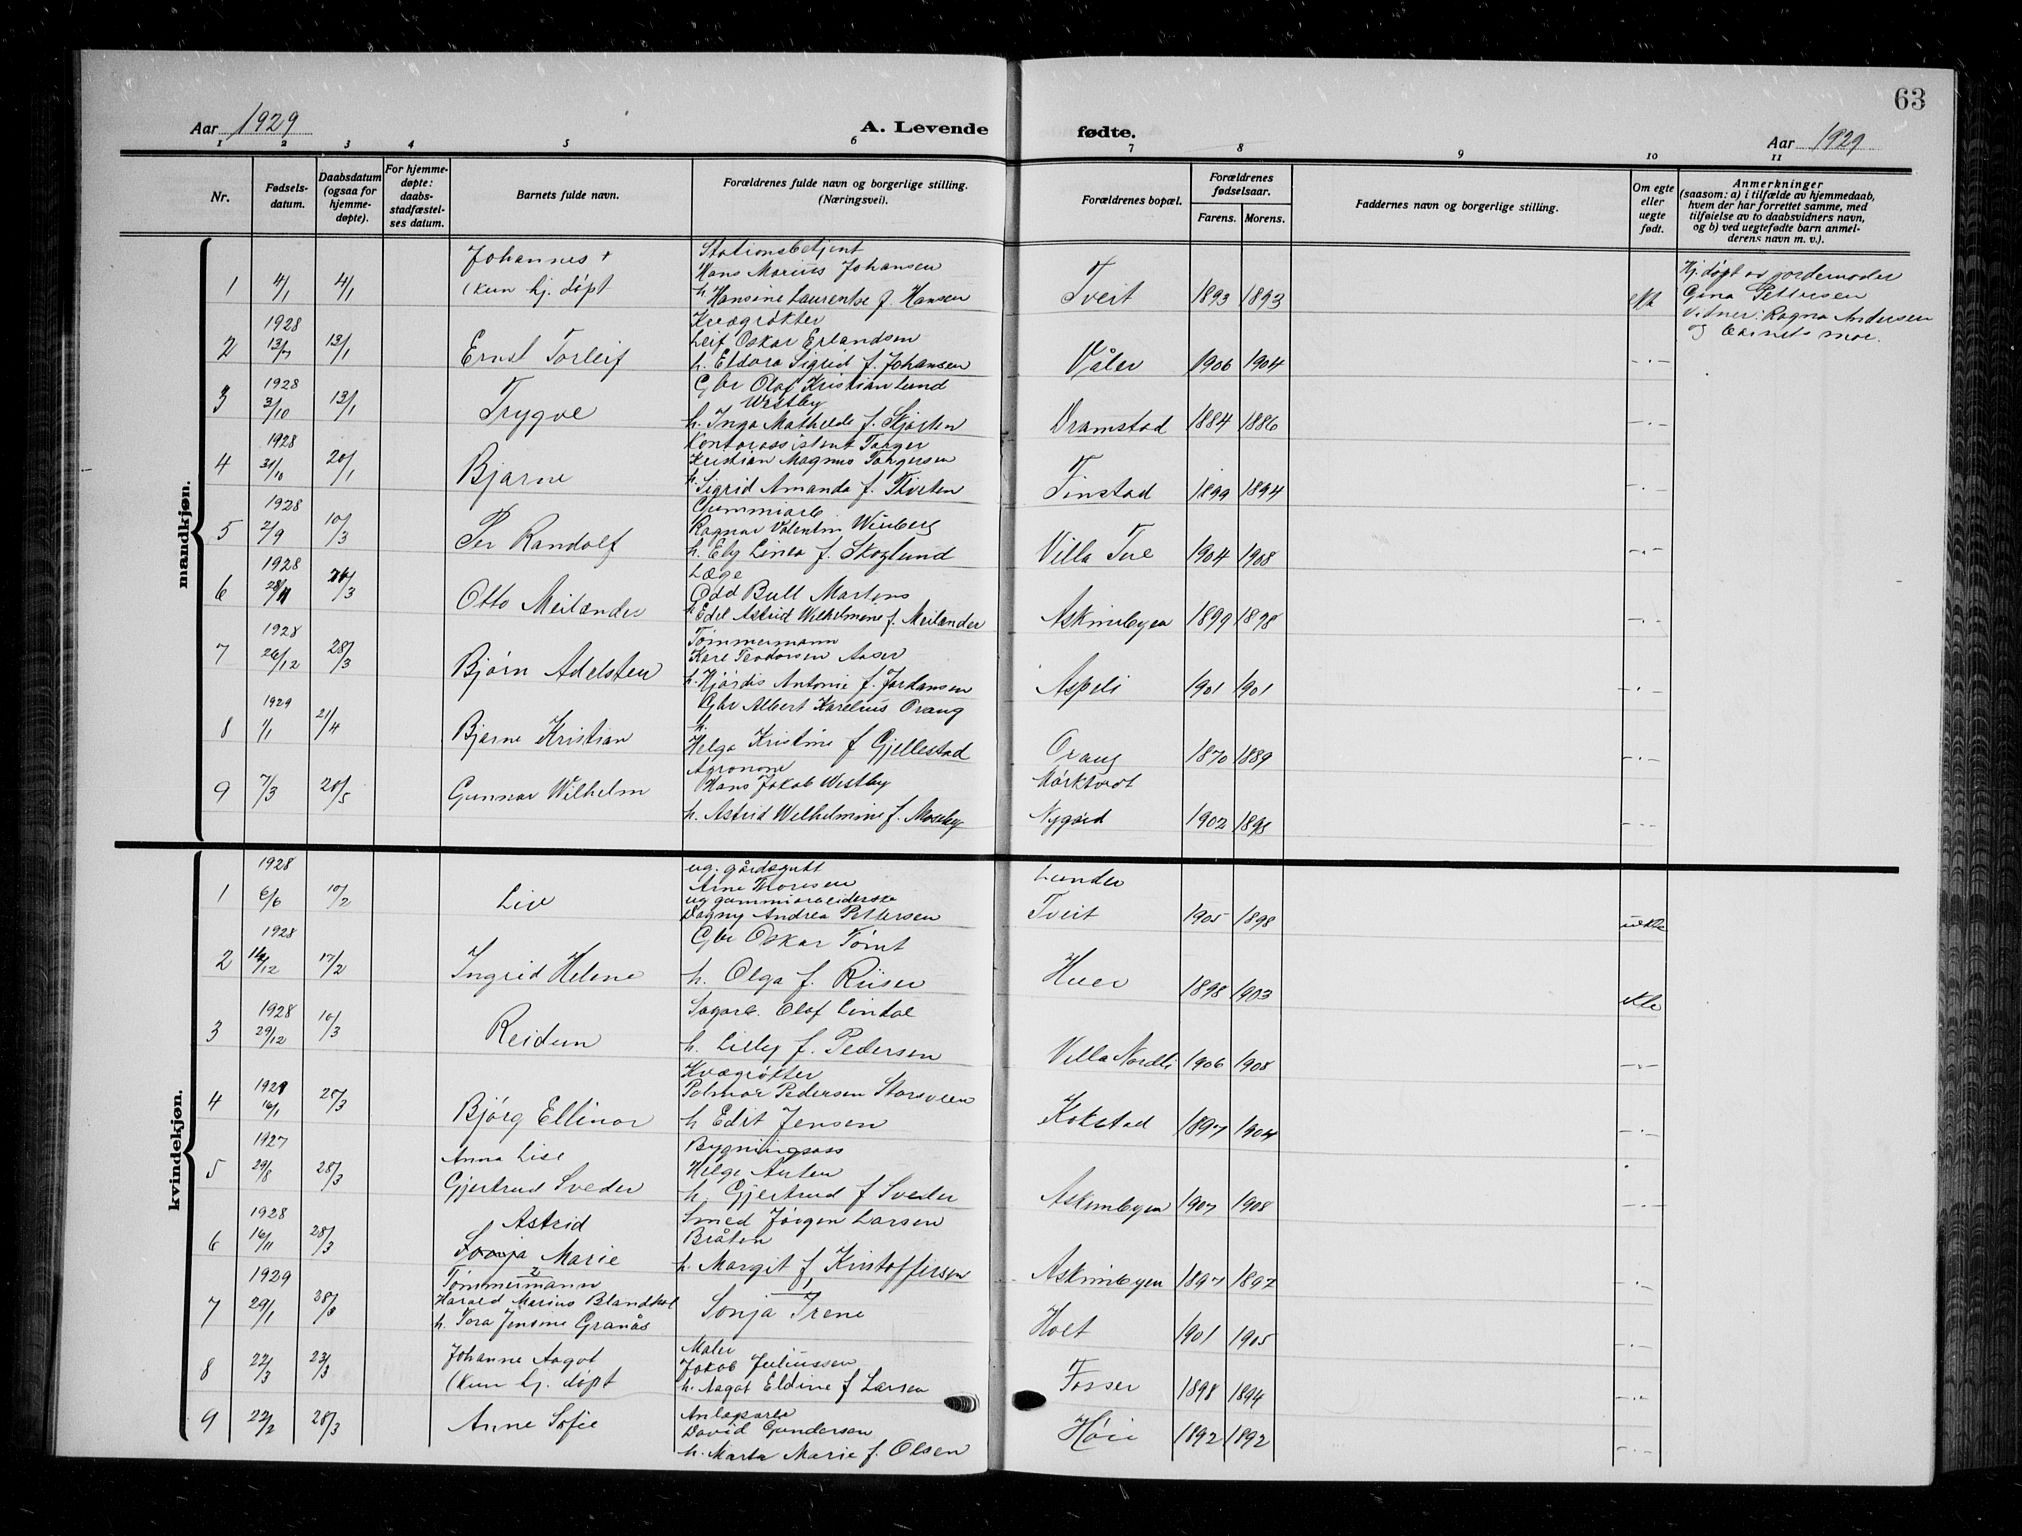 63
Aar 1929
A. Levende fødte.
Aar 1929
1 2 3 4 5 6 7 8 9 10 11
Nr.
Fødsels-
datum.
Daabsdatum
(ogsaa for
hjemme-
døpte).
For hjemme-
døpte:
daabs-
stadfæstel-
ses datum.
Barnets fulde navn.
Forældrenes fulde navn og borgerlige stilling.
(Næringsvei).
Forældrenes bopæl.
Forældrenes
fødselsaar.
Farens. Morens.
Faddernes navn og borgerlige stilling.
Om egte
eller
uegte
født.
Anmerkninger
(saasom: a) i tilfælde av hjemmedaab,
hvem der har forrettet samme, med
tilføielse av to daabsvidners navn,
og b) ved uegtefødte barn anmel-
derens navn m. v.).
mandkjøn.
1 4/1 4/1
Johannes +
(kun hj. døpt
Stationsbetjent
Hans Marius Johansen
h. Hansine Laurentse f. Hansen
Tveit 1893 1893 ekte
Hj. døpt av jordemoder
Gina Pettersen
Vitner: Ragna Andersen
og barnets mor.
2 1928 13/1
Ernst Torleif
Kvægrøkter
Leif Oskar Erlandsen
h. Eldora Sigrid f. Johansen
Våler 1906 1904 -.-
3 1928 3/10 13/1
Trygve
Gbr Olaf Kristian Lund
Westby
h. Inga Mathilde f. Skjørten
Dramstad 1884 1886 -.-
4 1928 31/10 20/1
Bjarne
Kontorassistent Torger
Kristian Magnus Torgersen
h. Sigrid Amanda f.
Finstad 1899 1894 -.-
5 1928 2/9 10/3
Per Randolf
Gummiarb
Ragnar Valentin Winberg
h. Ely Linea f. Skoglund
Villa Tue 1904 1908 -.-
6 1928 28/11
Otto Meilænder
Læge
Odd Bull Martens
h. Edel Astrid Wilhelmine f. Meilænder
Askimbyen 1899 1898 -.-
7 1928 26/12 28/3
Bjørn Adelsten
Tømmermann
Kare Teodorsen Aaser
h. Hjørdis Antonie f. Jordansen
Aspeli 1901 1901 -.-
8 1929 1/1 21/4
Bjarne Kristian
Gbr Albert Karelius Ovaug
h.
Helga Kristine f Gjellestad
Ovaug 1870 1889 -.-
9 7/3 20/5
Gunnar Wilhelm
Agronom
Hans Jakob Westby
h. Astrid Wilhelmine f. Moseby
Mørktvedt
Nygård 1902 1895 ---
kvindekjøn.
1 1928 6/6 10/2
Liv
ug. gårdsgutt
Arne Thoresen
ug gummiarbeiderske
Dagny Andrea Pettersen
Lunder
Tveit 1905 1898 uekte
2 1928 17/2
Ingrid Helene
Gbr Oskar Tømt
h. Olga f. Riiser
Huer 1898 1903 ekte
3 1928 29/12 10/3
Reidun
Sagarb. Olaf Lindal
h. Lilly f. Pedersen
Villa Nordli 1906 1908 -.-
4 1929 16/1 28/3
Bjørg Ellinor
Kvægrøkter
Polmar Pedersen Storsveen
h Edit Jensen
Kokstad 1897 1904 -.-
5 1927 29/8 28/3
Anna Lise
Gjertrud Sveder
Bygningsass
Helge Auten
h. Gjertrud f Sveder
Askimbyen 1907 1908 -.-
6 1928 16/11 28/3
Astrid
Sonja Marie
Smed Jørgen Larsen
Bråten
h. Margit f Kristoffersen
Askimbyen 1897 1897 -.-
7 1929 29/1 28/3
Tømmermann
Harald Marius Blandkol
h. Tora Jensine Granås
Sonja Irene
Holt 1901 1905 -.-
8 22/3 23/3
Johanne Aagot
(kun hj. døpt
Maler
Jakob Juliussen
h. Aagot Eldine f Larsen
Fosser 1898 1894 -.-
9 22/2 28/3
Anne Sofie
Anlægsarb
David Gundersen
h. Marta Marie f. Olsen
Høie 1892 1892 -.-